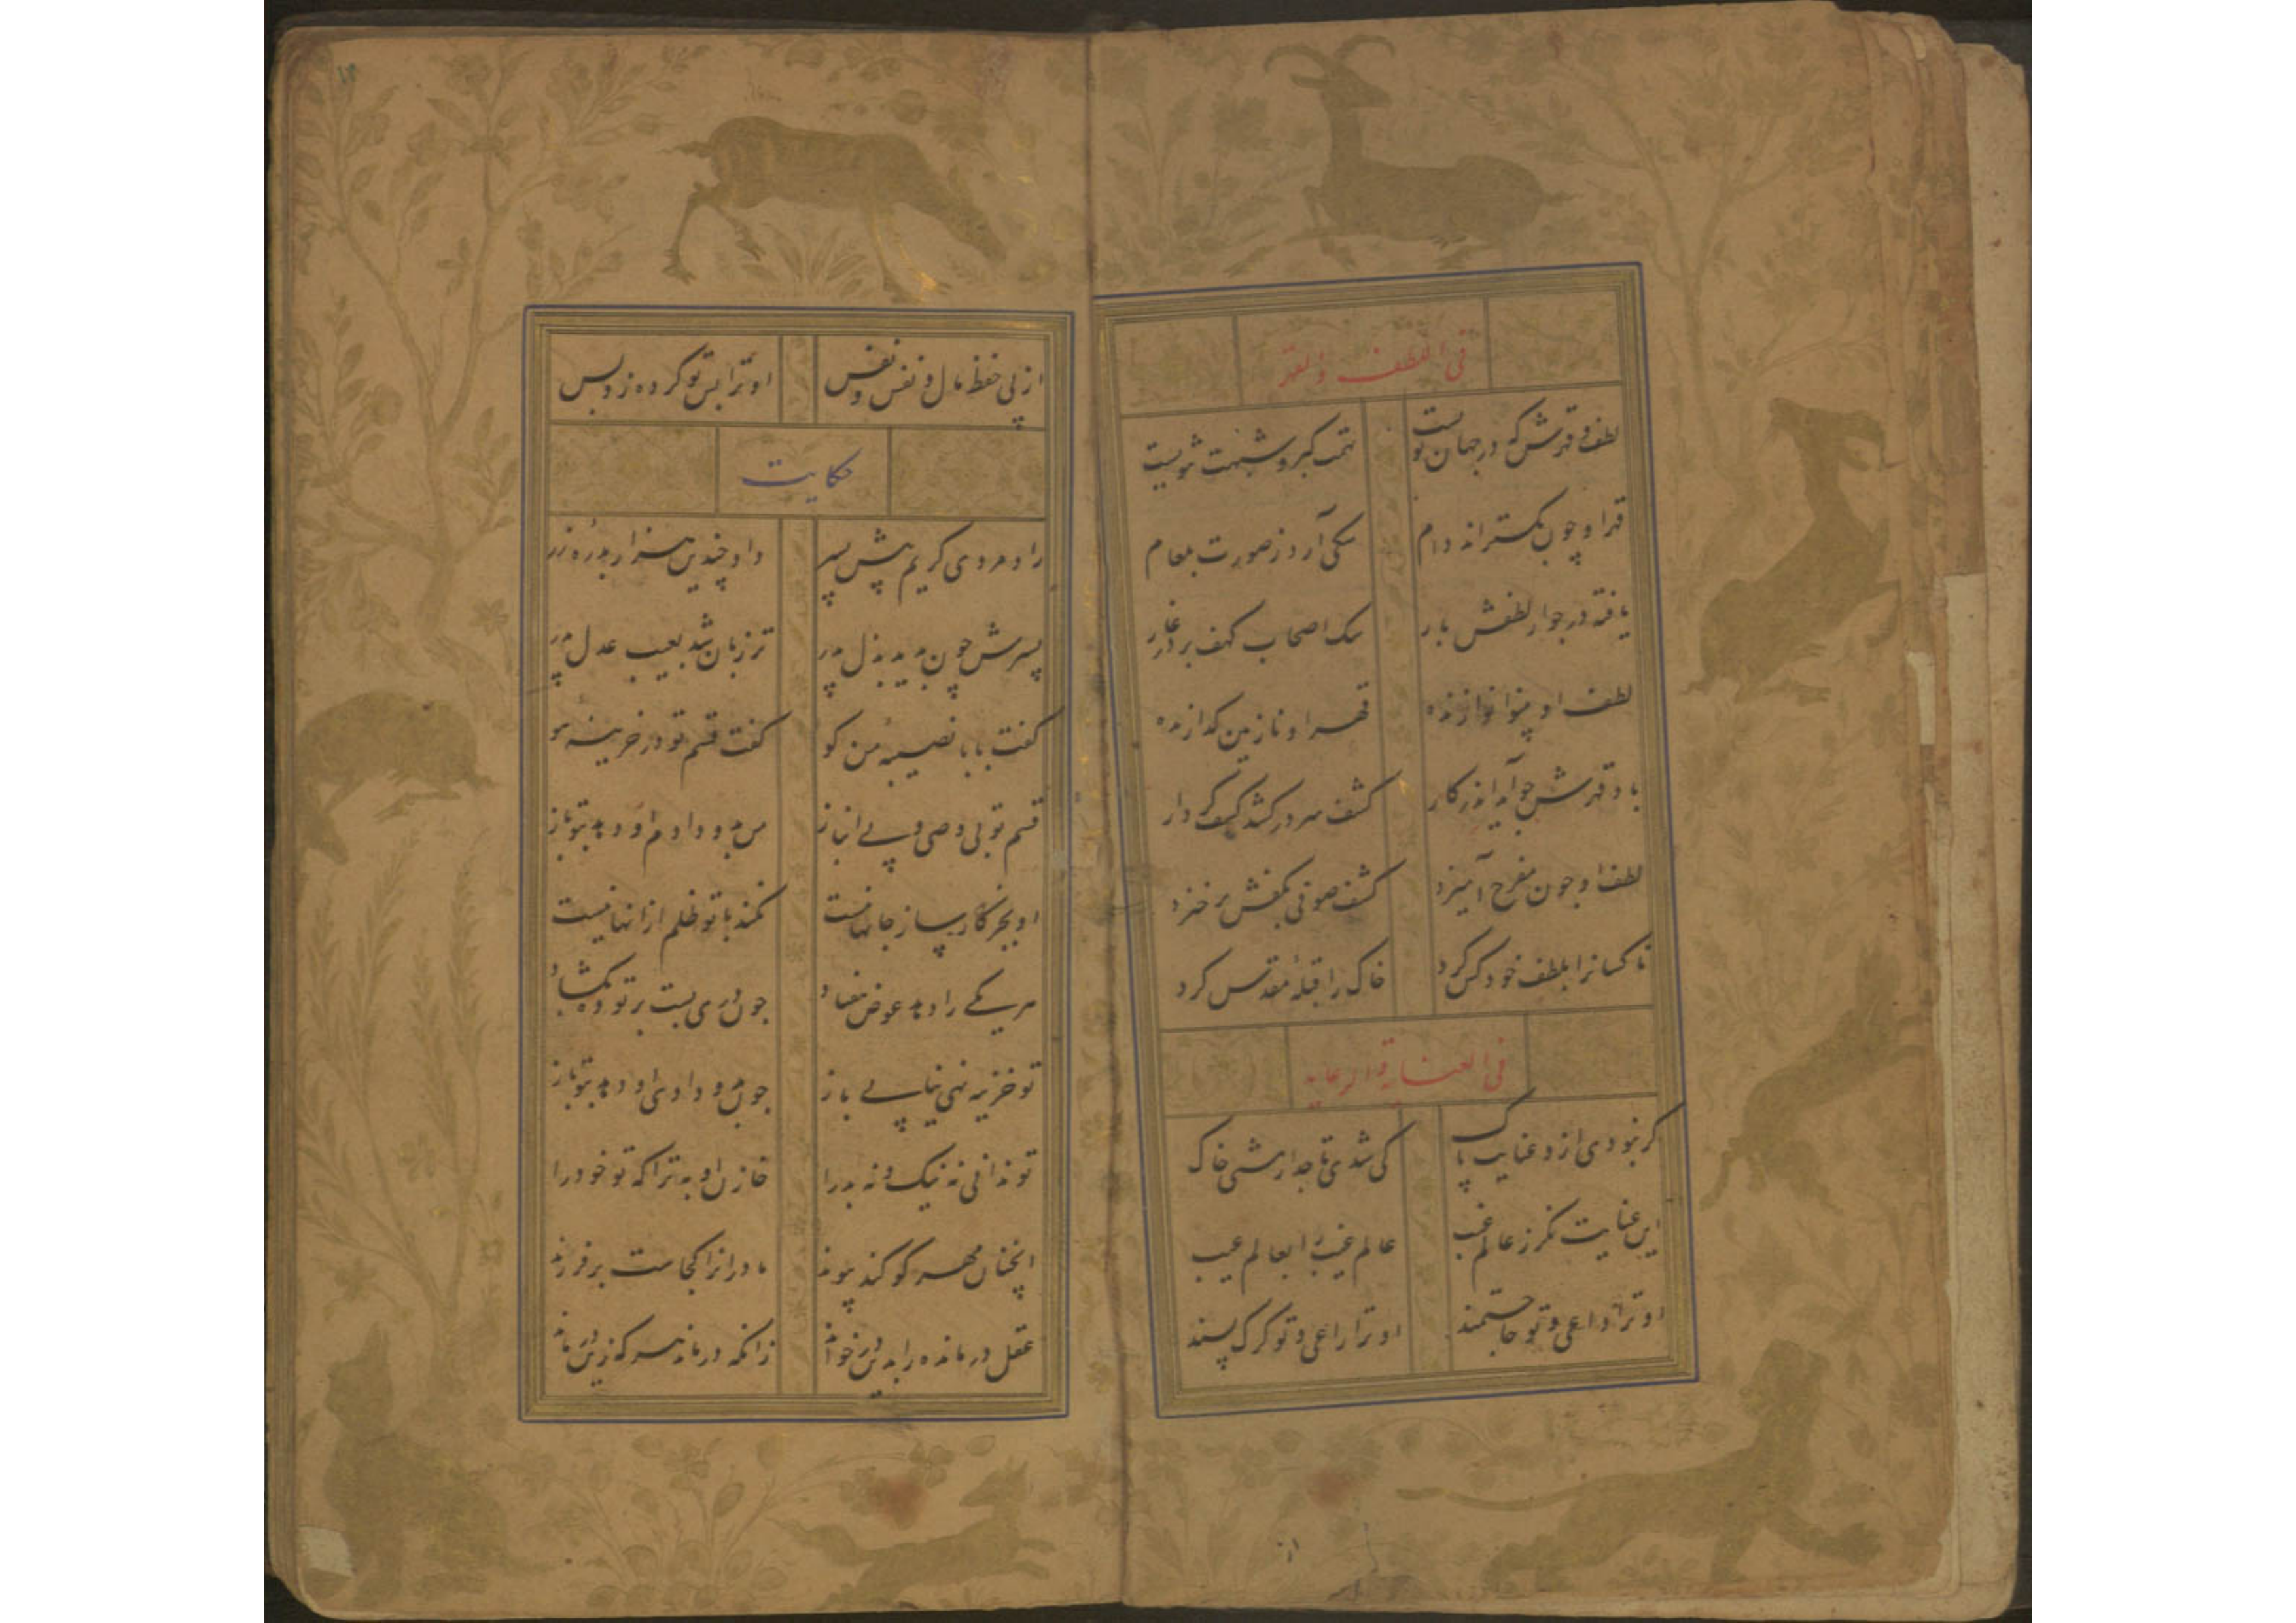 فی اللطف والقهر
لطف و قهرش که در جهان نوست تهمت کبر و شبهت ثنویست
قهر او چون بکستراند دام سکی آرد ز صورت بلعام
یافته در جوار لطفش بار سک اصحاب کهف بر در غار
لطف او بینوا نوازنده قهر او نازنین کدازنده
باد قهرش چو آید اندر کار کشف سر در کشد کشف کردار
لطف او چون مفرح آمیزد کشف صوفی بکفش بر خیزد
ناکسانرا بلطف خود کس کرد خاک را قبلهٔ مقدس کرد
فی العنایة والرعایة
کر نبودی ازو عنایت پاک کی شدی تاجدار مشتی خاک
این عنایت نکر ز عالم غیب عالم غیب را بعالم عیب
او ترا داعی و تو حاجتمند او ترا راعی و تو کرک پسند
از پی حفظ مال و نفس و نفس او ترا بس تو کرده زو بس
حکایت
راد مردی کریم پیش پسر داد چندین هزار بدرهٔ زر
پسرش چون بدید بذل پدر تر زبان شد بعیب عدل پدر
کفت بابا نصیبهٔ من کو کفت قسم تو در خزینهٔ هو
قسم تو بی وصی و بی انباز من بدو دادم او دهد بتو باز
او بجز کارساز جانها نیست نکند با تو ظلم ازانها نیست
هر یکی را دهد عوض هفتاد چون دری بست بر تو ده بکشاد
تو خزینه نهی نیابی باز چون بدو دادی او دهد بتو باز
تو ندانی نه نیک و نه بد را خازن او به ترا که تو خود را
آنچنان مهر کو کند پیوند مادرانرا کجاست بر فرزند
عقل درمانده را بدین در خواند زانکه درماند هر که زین در ماند